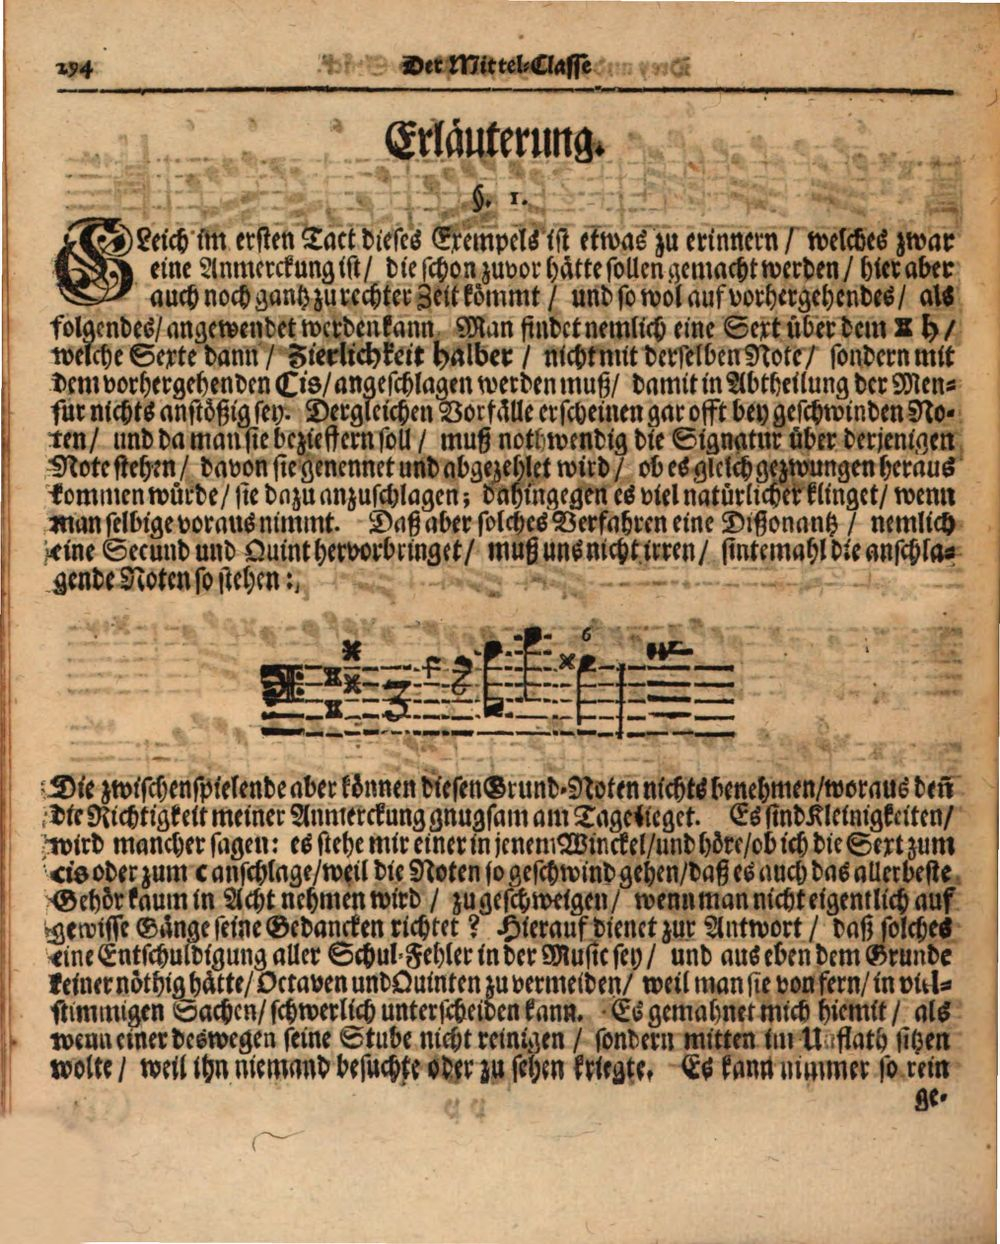 294 Der Mittel-Classe
Erläuterung.
§. 1.
GLeich im ersten Tact dieses Exempels ist etwas zu erinnern / welches zwar
eine Anmerckung ist / die schon zuvor hätte sollen gemacht werden / hier aber
auch noch gantz zu rechter Zeit kömmt / und so wol auf vorhergehendes / als
folgendes / angewendet werden kann. Man findet nemlich eine Sext über dem ⌗ h /
welche Sexte dann / Zierlichkeit halber / nicht mit derselben Note / sondern mit
dem vorhergehenden Cis / angeschlagen werden muß / damit in Abtheilung der Men-
sur nichts anstößig sey. Dergleichen Vorfälle erscheinen gar offt bey geschwinden No-
ten / und da man sie bezieffern soll / muß nothwendig die Signatur über derjenigen
Note stehen / davon sie genennet und abgezehlet wird / ob es gleich gezwungen heraus
kommen würde / sie dazu anzuschlagen; dahingegen es viel natürlicher klinget / wenn
man selbige voraus nimmt. Daß aber solches Verfahren eine Dißonantz / nemlich
eine Secund und Quint hervorbringet / muß uns nicht irren / sintemahl die anschla-
gende Noten so stehen:
3 6
Die zwischenspielende aber können diesen Grund-Noten nichts benehmen / woraus deñ
die Richtigkeit meiner Anmerckung gnugsam am Tage lieget. Es sind Kleinigkeiten /
wird mancher sagen: es stehe mir einer in jenem Winckel / und höre / ob ich die Sext zum
cis oder zum c anschlage / weil die Noten so geschwind gehen / daß es auch das allerbeste
Gehör kaum in Acht nehmen wird / zu geschweigen / wenn man nicht eigentlich auf
gewisse Gänge seine Gedancken richtet ? Hierauf dienet zur Antwort / daß solches
eine Entschuldigung aller Schul-Fehler in der Music sey / und aus eben dem Grunde
keiner nöthig hätte / Octaven und Quinten zu vermeiden / weil man sie von fern / in viel-
stimmigen Sachen / schwerlich unterscheiden kann. Es gemahnet mich hiemit / als
wenn einer deswegen seine Stube nicht reinigen / sondern mitten im Unflath sitzen
wolte / weil ihn niemand besuchte oder zu sehen kriegte. Es kann nimmer so rein
ge-